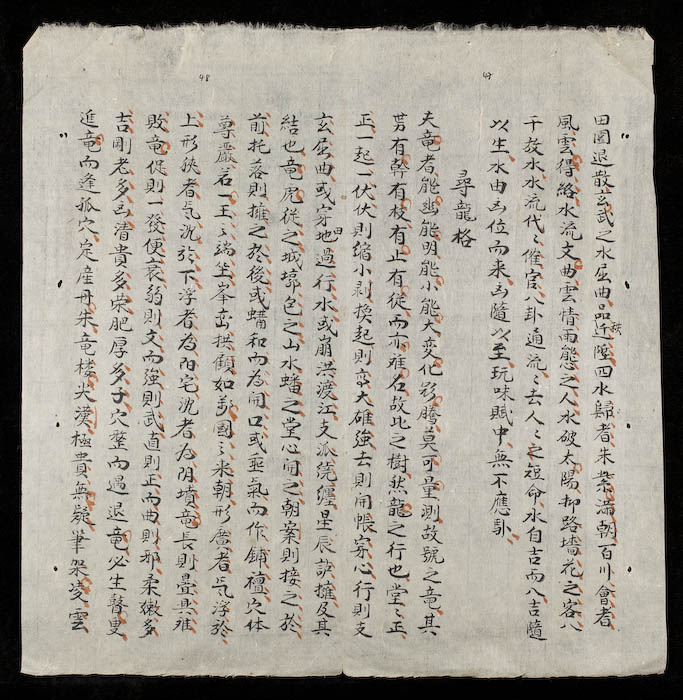 田園退散玄武之水屈曲品近陛四水歸者朱紫滿朝百川會者
風雲得路水流文曲雲情雨態之人水破太陽柳路墻花之客八
干放水水流代〻催官八卦通流〻去人〻之短命水自吉而入吉隨
以生水由凶位而来凶隨以至玩味賦中無不應卦
尋龍格
夫竜者能幽能明能小能大変化彩騰莫可量測故號之竜其
勢有幹有枝有止有従而亦难名故比之樹然龍之行也堂〻正
正一起一伏伏則缩小剥換起則高大雄強去則開帳穿心行則支
玄屈曲或穿田地過行水或崩洪渡江支派绕纏星辰諺擁及其
結也竜虎從之城郭包之山水蟠之堂心開之朝案則接之於
前托落則擁之於後或蟠和而為開口或亟氣而作鋪襢穴体
尊嚴若一王〻端坐峯峦拱顧如萬國之来朝形廣者气浮於
上形狹者气沉於下浮者為阳宅沉者為阴墳竜長則疊具难
敗竜促則一發便衰弱則文而強則武直則正而曲則邪柔嫩多
吉剛老多凶清貴多荣肥厚多子穴整而遇退竜必生瞽叟
進竜而逢孤穴定産丹朱竜楼尖漢極貴無疑筆架凌雲
48
47